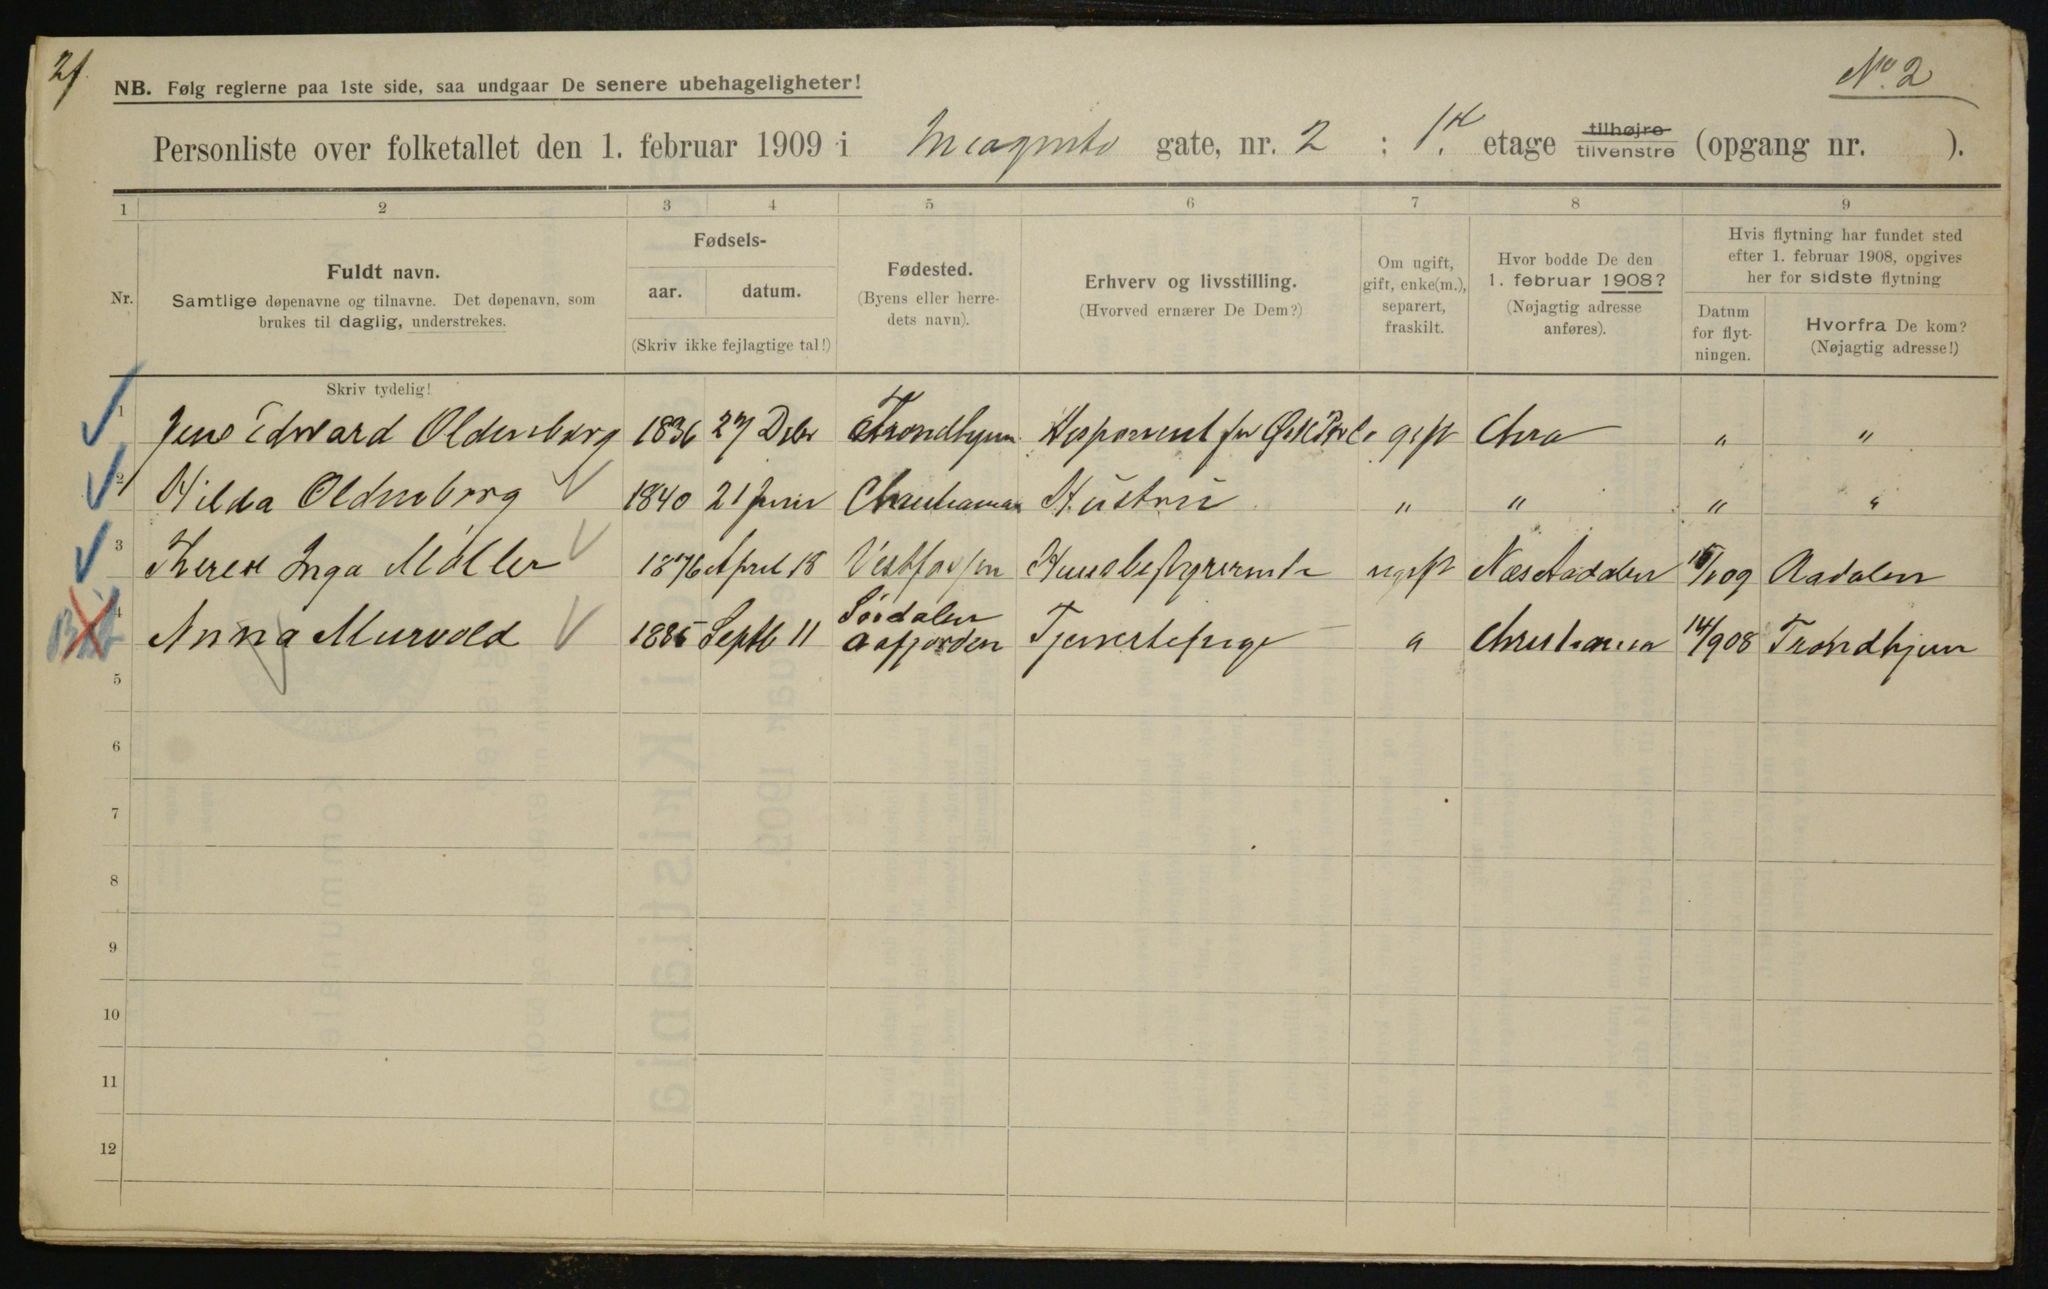 21.
No 2
NB. Følg reglerne paa 1ste side, saa undgaar De senere ubehageligheter!
Personliste over folketallet den 1. februar 1909 i Incognito gate, nr. 2 : 1. etage tilhøjre tilvenstre (opgang nr. ).
1 2 3 4 5 6 7 8 9
Nr.
Fuldt navn.
Samtlige døpenavne og tilnavne. Det døpenavn, som
brukes til daglig, understrekes.
Skriv tydelig!
Fødsels-
aar. datum.
(Skriv ikke fejlagtige tal!)
Fødested.
(Byens eller herre-
dets navn).
Erhverv og livsstilling.
(Hvorved ernærer De Dem?)
Om ugift,
gift, enke(m.),
separert,
fraskilt.
Hvor bodde De den
1. februar 1908?
(Nøjagtig adresse
anføres).
Hvis flytning har fundet sted
efter 1. februar 1908, opgives
her for sidste flytning
Datum
for flyt-
ningen.
Hvorfra De kom?
(Nøjagtig adresse!)
1 Jens Edward Oldenborg 1836 27 Dcbr Trondhjem gift Chra " "
2 Hilda Oldenborg 1840 21 Juni Christiania Hustru " " " "
3 Inga Møller 1876 April 18 Vestfossen Husbestyrerinde ugift Næs Aadalen 15/1 09 Aadalen
4 Anna Murvold 1885 Septb 11 Sördalen Aafjorden Tjenestepige " Christiania 14/9 08 Trondhjem
5
6
7
8
9
10
11
12